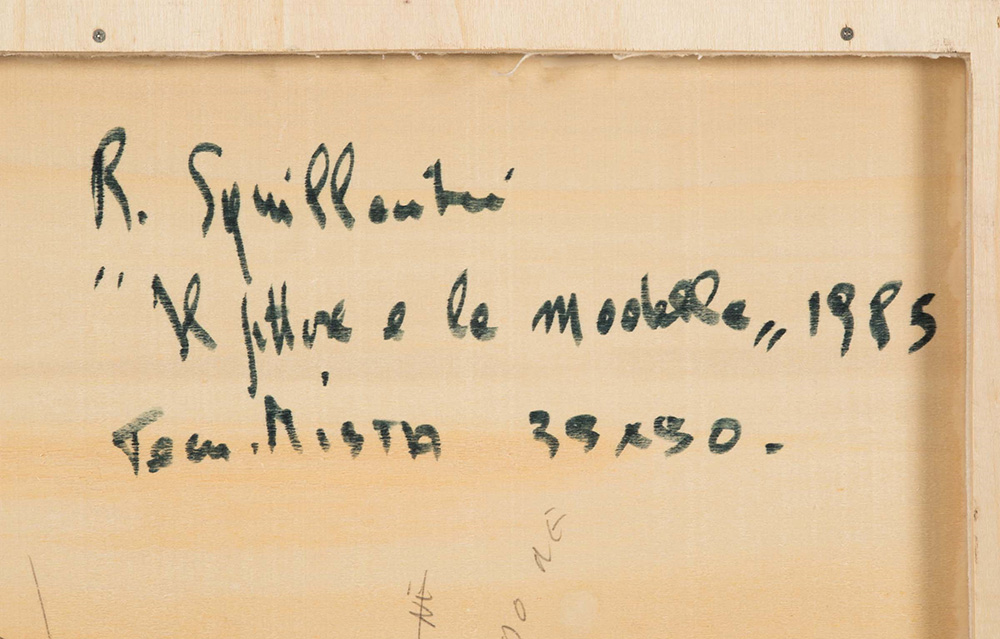 R. Squillantini
"Il pittore e la modella„ 1985
Tecn. MISTA